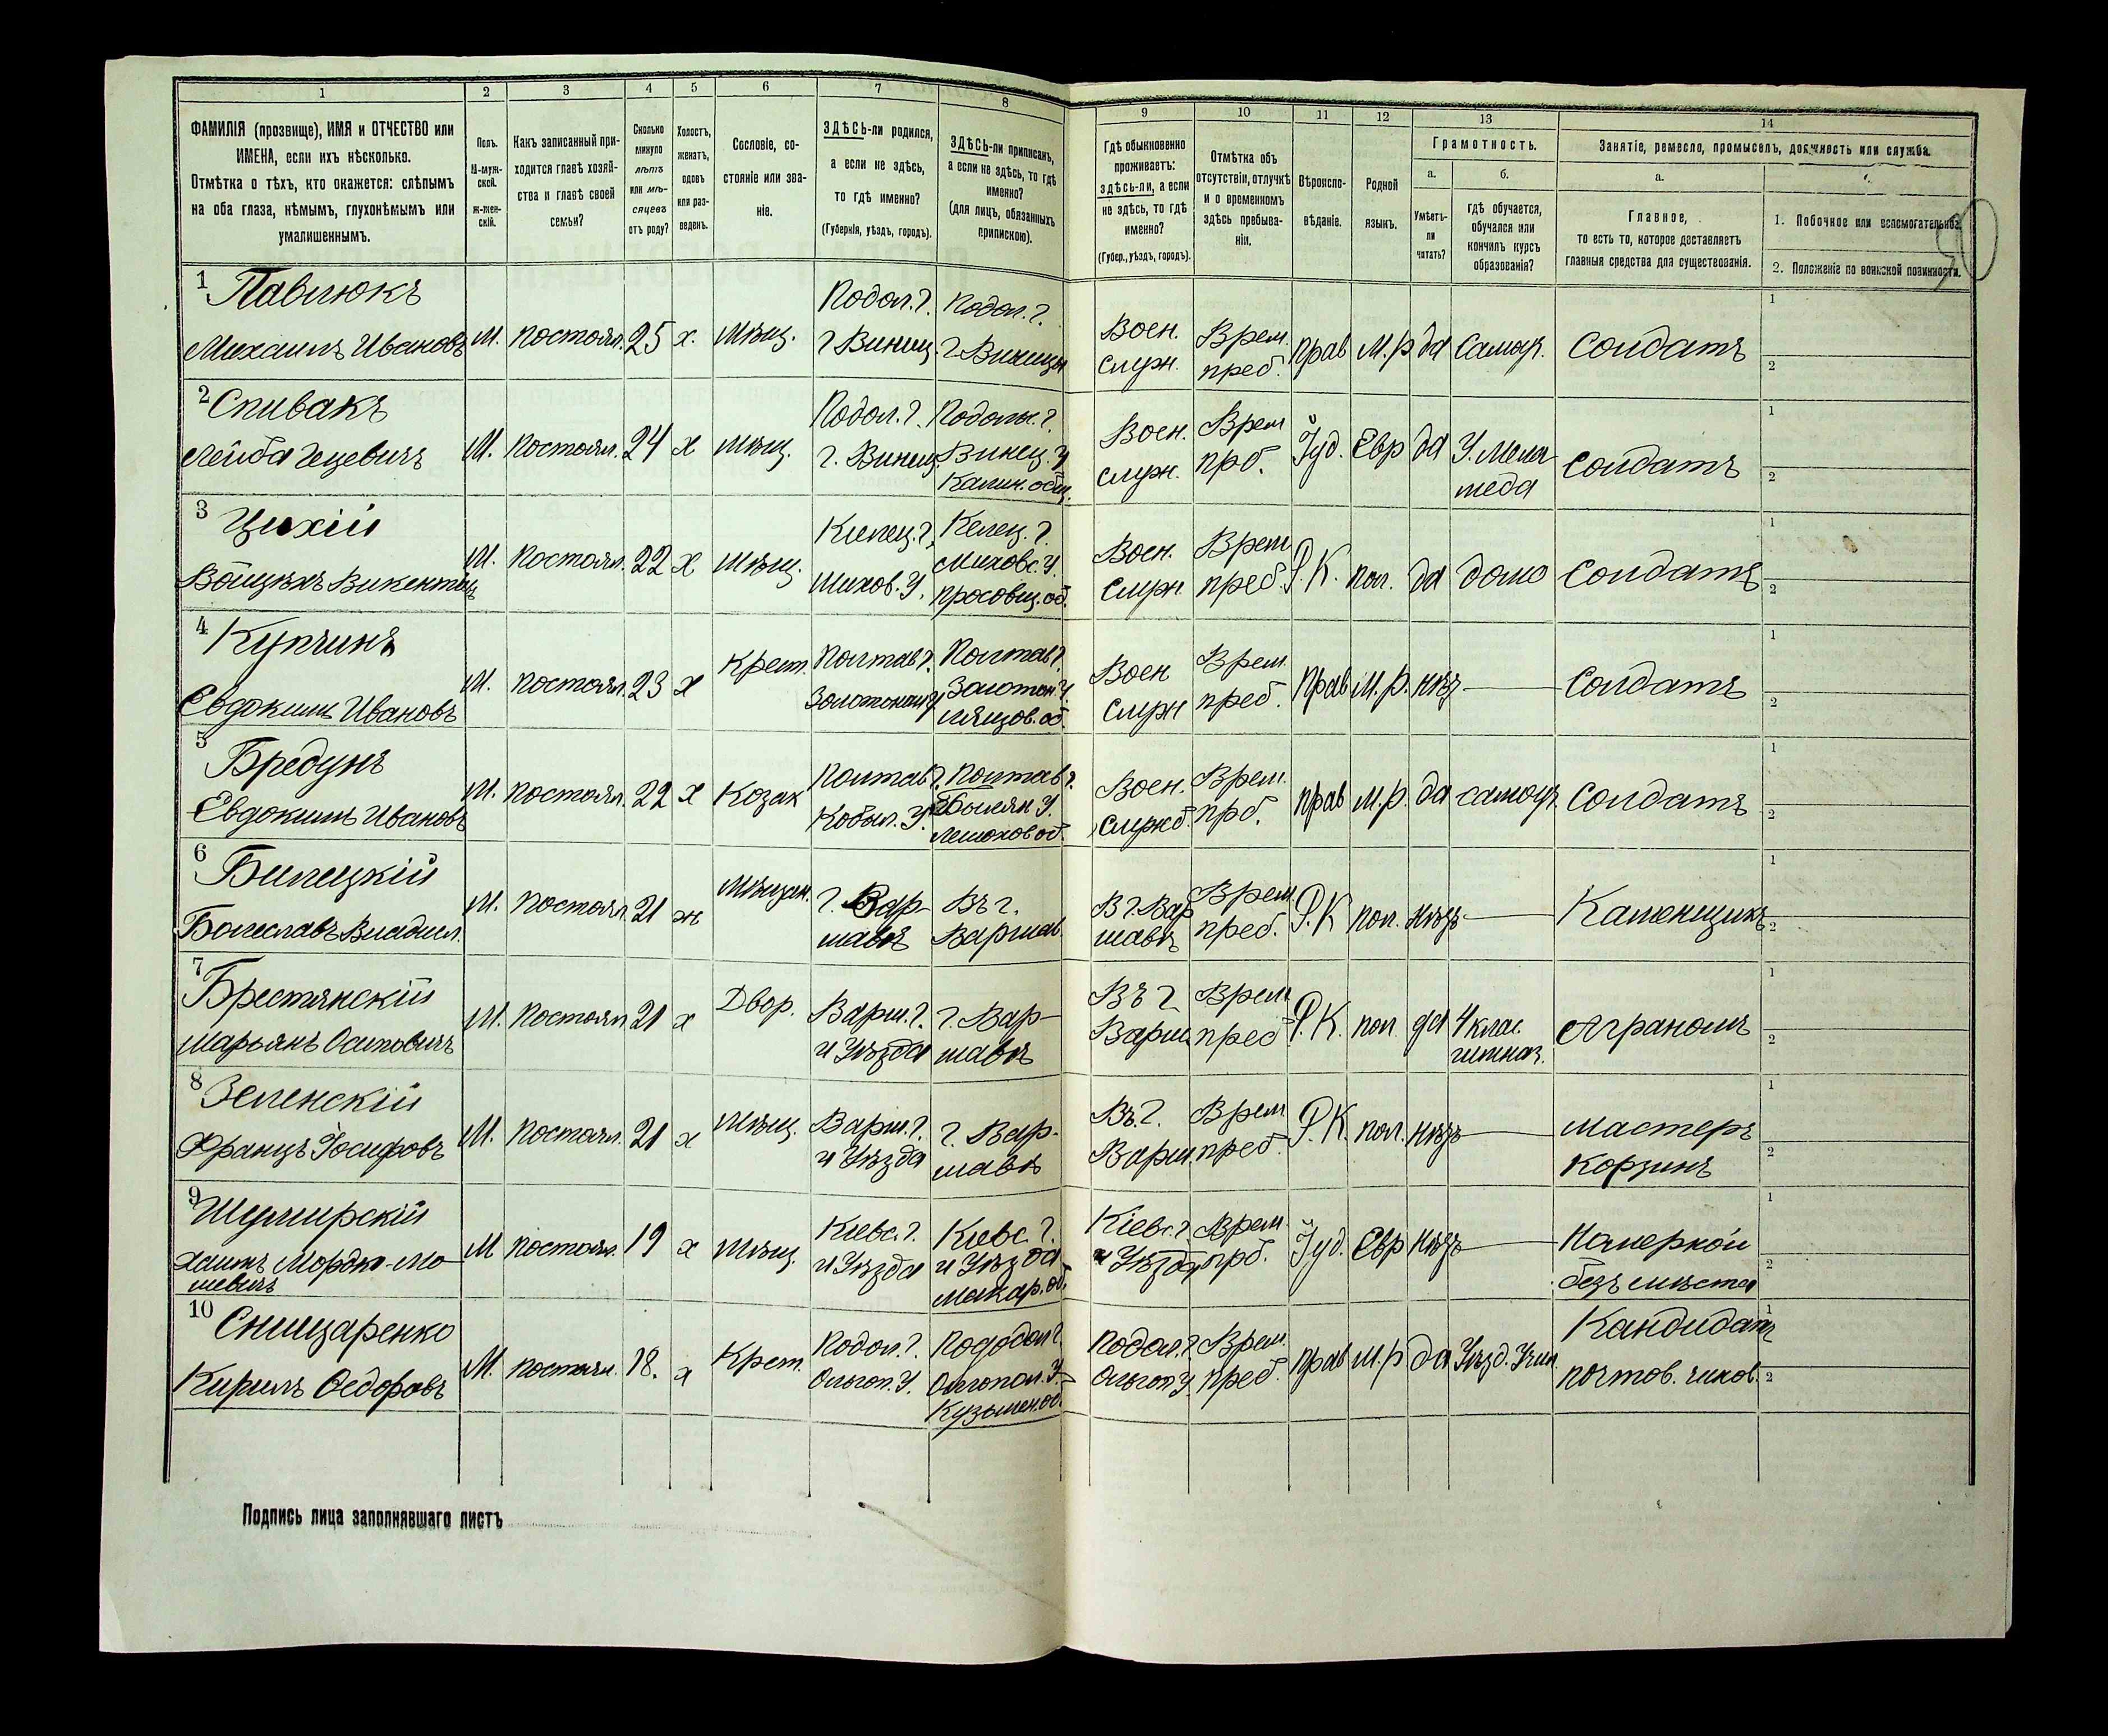 1
2
3
4
5
6
7
8
9
10
11
12
13
14
ФАМИЛІЯ (прозвище), ИМЯ и ОТЧЕСТВО или
ИМЕНА, если ихъ нѣсколько.
Отмѣтка о тѣхъ, кто окажется: слѣпымъ
на оба глаза, нѣмымъ, глухонѣмымъ или
умалишеннымъ.
Полъ.
М-муж-
ской.
ж-жен-
скій.
Какъ записанный при-
ходится главѣ хозяй-
ства и главѣ своей
семьи?
Сколько
минуло
лѣтъ
или мѣ-
сяцевъ
отъ роду?
Холостъ,
женатъ,
вдовъ
или раз-
веденъ.
Сословіе, со-
стояніе или зва-
ніе.
ЗДѢСЬ-ли родился,
а если не здѣсь,
то гдѣ именно?
(Губернія, уѣздъ, городъ).
ЗДѢСЬ-ли приписанъ,
а если не здѣсь, то гдѣ
именно?
(для лицъ, обязанныхъ
припискою).
Гдѣ обыкновенно
проживаетъ:
здѣсь-ли, а если
не здѣсь, то гдѣ
именно?
(Губер., уѣздъ, городъ).
Отмѣтка объ
отсутствіи, отлучкѣ
и о временномъ
здѣсь пребыва-
ніи.
Вѣроиспо-
вѣданіе.
Родной
языкъ.
Грамотность.
а.
Умѣетъ-
ли
читать?
б.
гдѣ обучается,
обучался или
кончилъ курсъ
образованія?
Занятіе, ремесло, промыселъ, должность или служба.
а.
Главное,
то есть то, которое доставляетъ
главныя средства для существованія.
1. Побочное или вспомогательное.
2. Положеніе по воинской повинности.
1 Павлюкъ
Михаилъ Ивановъ
М. постоял. 25 х. Мѣщ.
Подол. г.
г Виниц.
Подол. г.
г. Виницы
Воен.
служ.
Врем.
преб.
прав М. р да Самоу. Солдатъ
1
2
2 Спивакъ
Лейба Гецевичъ
М. постоял. 24 х Мѣщ.
Подол. г.
г. Виниц.
Подольс. г.
Виниц. у
Калин. общ.
Воен.
служ.
Врем
прб.
Іуд. Евр да
У. Мела-
меда
Солдатъ
1
2
3 Цихій
Войцѣхъ Викентьев
М. постоял. 22 х Мѣщ.
Кѣлец. г.
Мѣхов. У.
Келец. г.
Мѣховс. У.
Просовиц. об.
Воен.
служ
Врем
преб.
Р. К. пол. да дома Солдатъ
1
2
4 Купчинъ
Евдокимъ Ивановъ
М. постоял. 23 х Крест.
Полтав г.
Золотонош у
Полтав г.
Золотон. У.
об.
Воен
служ
Врем.
преб.
прав М. р. нѣтъ — Солдатъ
1
2
5 Бредунъ
Евдокимъ Ивановъ
М. постоял. 22 х Козак
Полтав г.
Кобыл. У.
Полтав г.
У.
об.
Воен.
служб.
Врем.
прб.
прав М. р. да самоуч. Солдатъ
1
2
6 Билецкій
Болеславъ Владисл.
М. постоял 21 ж Мѣщан.
г. Вар-
шавѣ
Въ г.
Варшав.
В г. Вар
шавѣ
Врем
преб.
Р. К пол. нѣтъ — Каменщикъ
1
2
7 Брестянскій
Марьянъ Осиповичъ
М. постоял 21 х Двор.
Варш. г.
и Уѣзда
г. Вар-
шавѣ
Въ г
Варш
Врем
преб
Р. К. пол да
4 клас.
гимназ.
Аграномъ
1
2
8 Зеленскій
Францъ Іосифовъ
М. постоял. 21 х Мѣщ.
Варш. г.
и Уѣзда
г. Вар-
шавѣ
Въ г.
Варш
Врем
преб.
Р. К. пол. нѣтъ —
мастеръ
корзинъ
1
2
9 Шумирскій
Хаимъ Мордко-Мо-
шевичъ
М постоял. 19 х Мѣщ.
Кіевс. г.
и Уѣзда
Кіевс. г.
и Уѣзда
Макар. об.
Кіевс. г
и Уѣзда
Врем.
прб.
Іуд. Евр нѣтъ —
безъ мѣста
1
2
10 Снищаренко
Кирилъ Федоровъ
М. постоял. 18. х Крест.
Подол. г.
Ольгоп. У.
Пододол г.
Ольгопол. У
Кузьмен. об.
Подол. г
Ольгоп У
Врем.
преб.
прав М. р да Уѣзд. Учил.
Кандидатъ
почтов. чинов.
1
2
Подпись лица заполнявшаго листъ